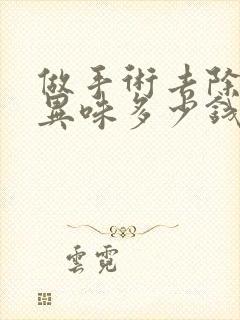 做手術去除
異味多少錢
雲霓